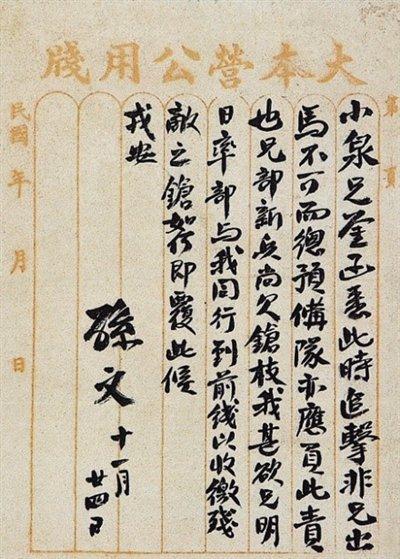 大本營公用牋
第 頁
小泉兄鑒函悉此時追擊非兄出
馬不可而總預備隊亦應負此責
也兄部新兵尚欠鎗枝我甚欲兄明
日率部與我同行到前线以收繳殘
敵之鎗如何即覆此候
戎
孫文十一月
廿四日
民國 年 月 日